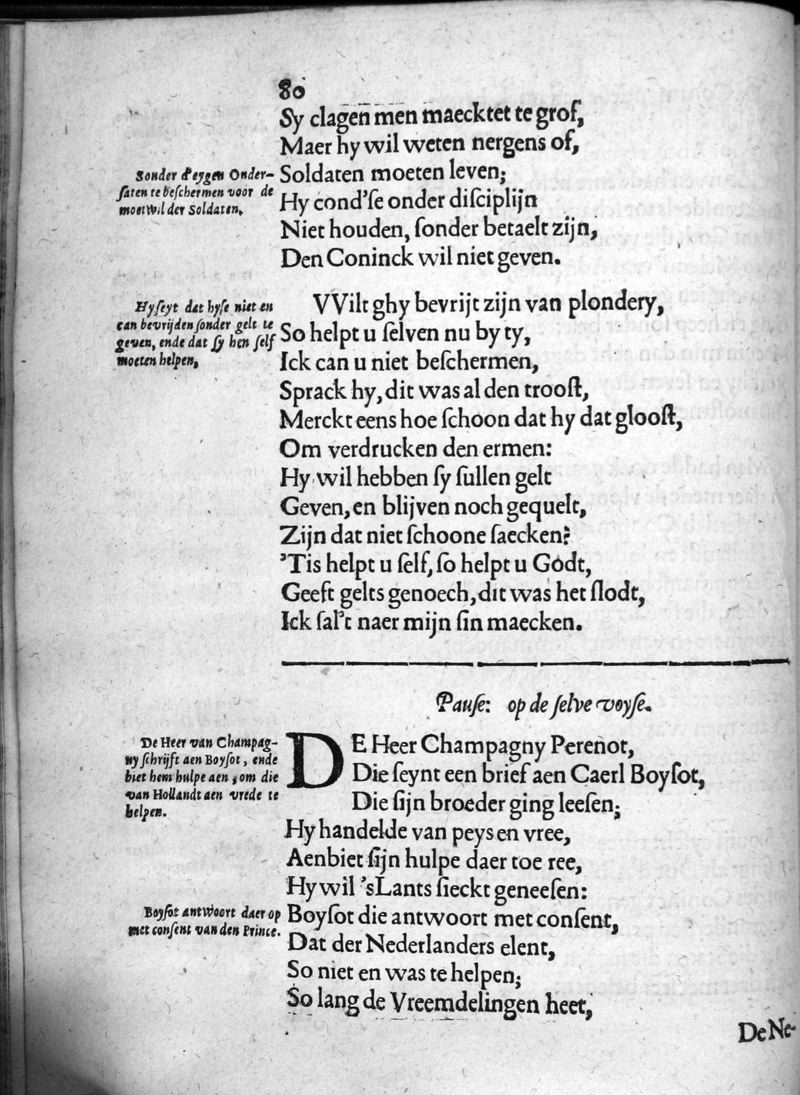 80
Sy clagen men maecktet te grof,
Maer hy wil weten nergens of,
Sonder sijgen Onder-
saten te beschermen voor de
moetwil der Soldaten,
Soldaten moeten leven;
Hy cond'se onder disciplijn
Niet houden, sonder betaelt zijn,
Den Coninck wil niet geven.
Hy seyt dat hyse niet en
can bevrijden sonder gelt te
geven, ende dat sy hen self
moeten helpen,
VVilt ghy bevrijt zijn van plondery,
So helpt u selven nu by ty,
Ick can u niet beschermen,
Sprack hy, dit was al den troost,
Merckt eens hoe schoon dat hy dat gloost,
Om verdrucken den ermen:
Hy wil hebben sy sullen gelt
Geven, en blijven noch gequelt,
Zijn dat niet schoone saecken?
'Tis helpt u self, so helpt u Godt,
Geeft gelts genoech, dit was het slodt,
Ick sal't naer mijn sin maecken.
Pause: op de selve voyse.
De Heer van Champag-
ny schrijft aen Boysot, ende
biet hem hulpe aen, om die
van Hollandt aen vrede te
helpen.
DE Heer Champagny Perenot,
Die seynt een brief aen Caerl Boysot,
Die sijn broeder ging leesen;
Hy handelde van peys en vree,
Aenbiet sijn hulpe daer toe ree,
Hy wil 'sLants sieckt geneesen:
Boysot antwoort daer op
met consent van den Prince.
Boysot die antwoort met consent,
Dat der Nederlanders elent,
So niet en was te helpen;
So lang de Vreemdelingen heet,
De Ne-